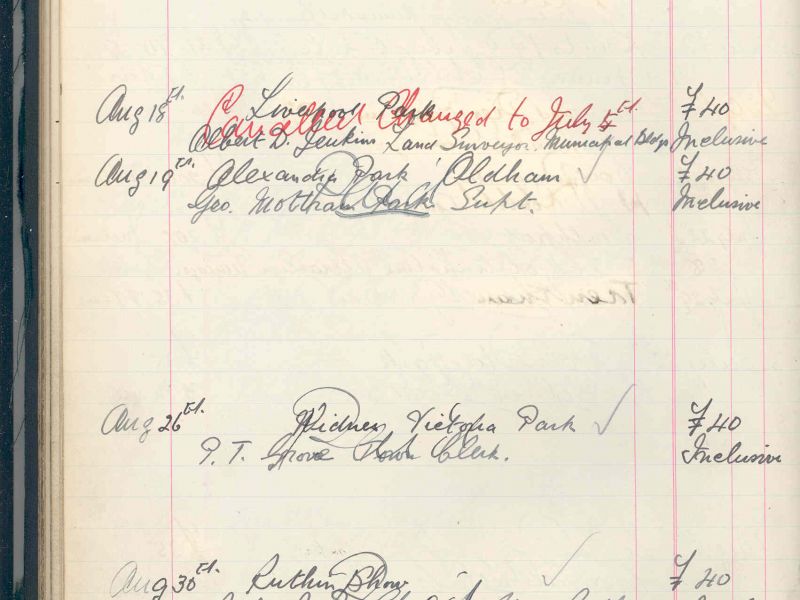 Aug 18th. Liverpool Park £40
Cancelled Changed to July 5th.
Albert D. Jenkins Land Surveyor. Municipal Bldgs Inclusive
Aug 19th. Alexandra Park Oldham £40
Geo. Mottham Park Supt. Inclusive
Aug 26th. Widnes Victoria Park £40
P. T. Grove Town Clerk. Inclusive
Aug 30th. Ruthin Show £40